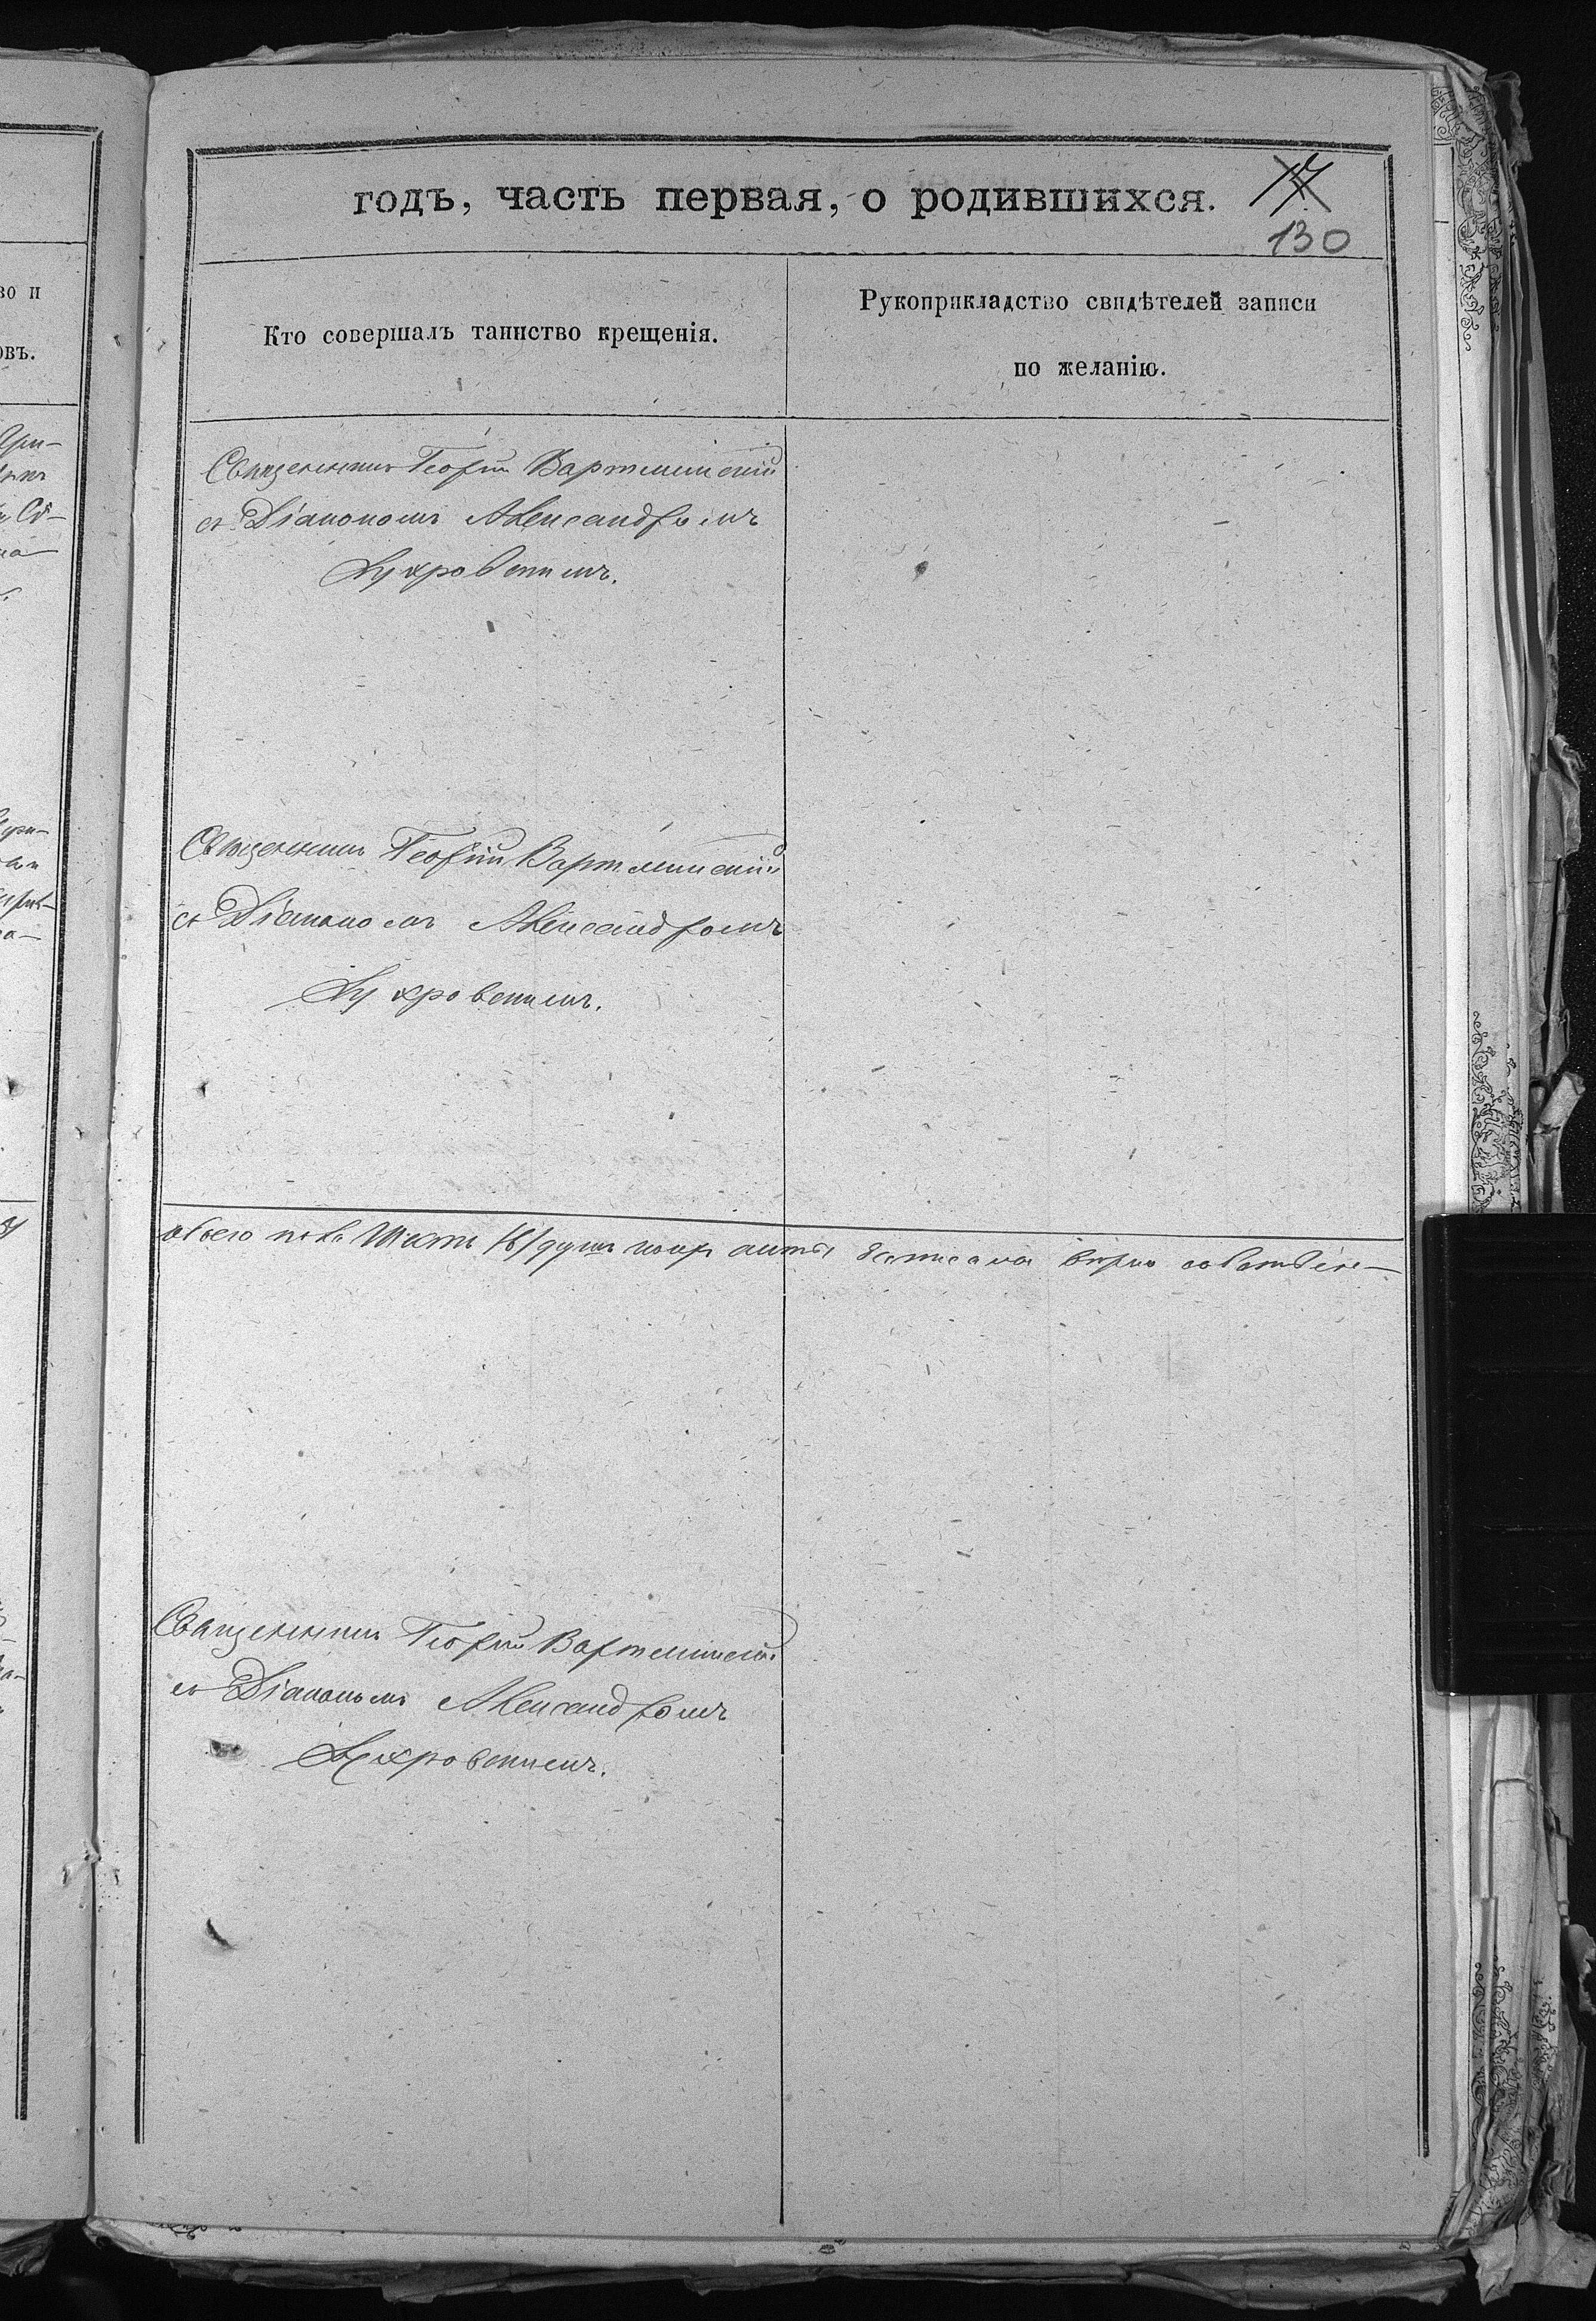 годъ, часть первая, о родившихся.
130
Кто совершалъ таинство крещенія.
Рукоприкладство свидѣтелей записи
по желанію.
Священникъ Георгій Вартминскій
съ Діакономъ Александромъ
Священникъ Георгій Вартминскій
съ Діакономъ Александромъ
обоего пола шесть /6/ душъ записана вѣрно
Священникъ Георгій Вартминскій
съ Діакономъ Александромъ